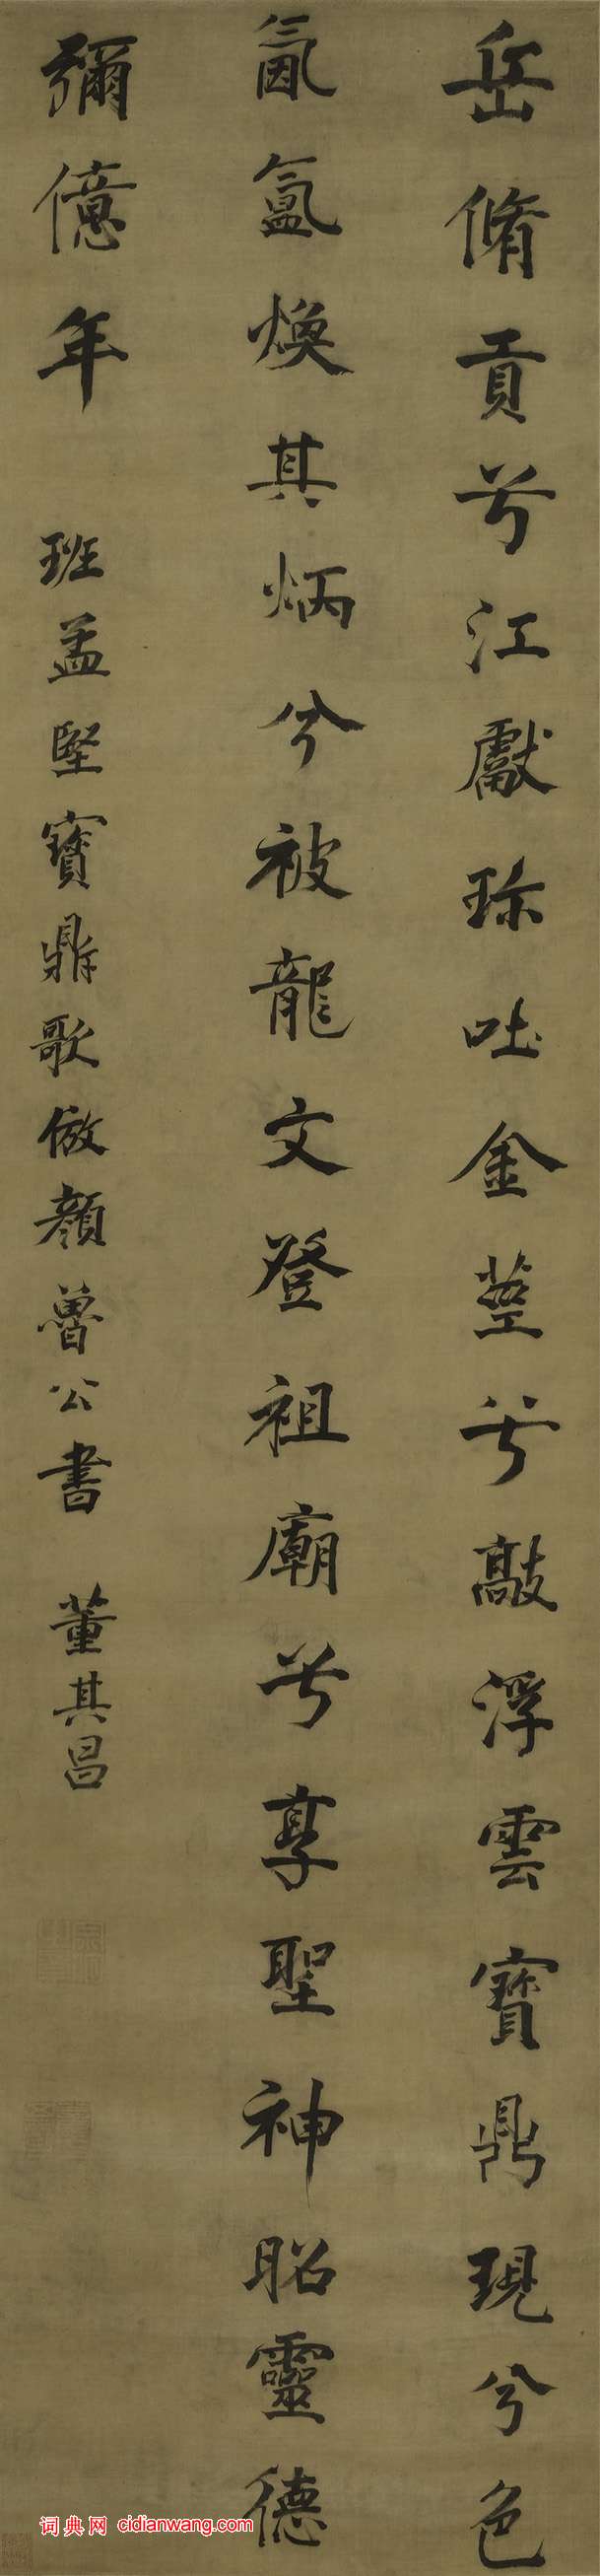 岳脩貢兮江獻珎吐金莖兮敲浮雲寶鼎現兮色
氤氳煥其炳兮被龍文登祖廟兮享聖神昭靈德
彌億年 班孟堅寶鼎歌倣顏魯公書 董其昌
词典网 cidianwang.com